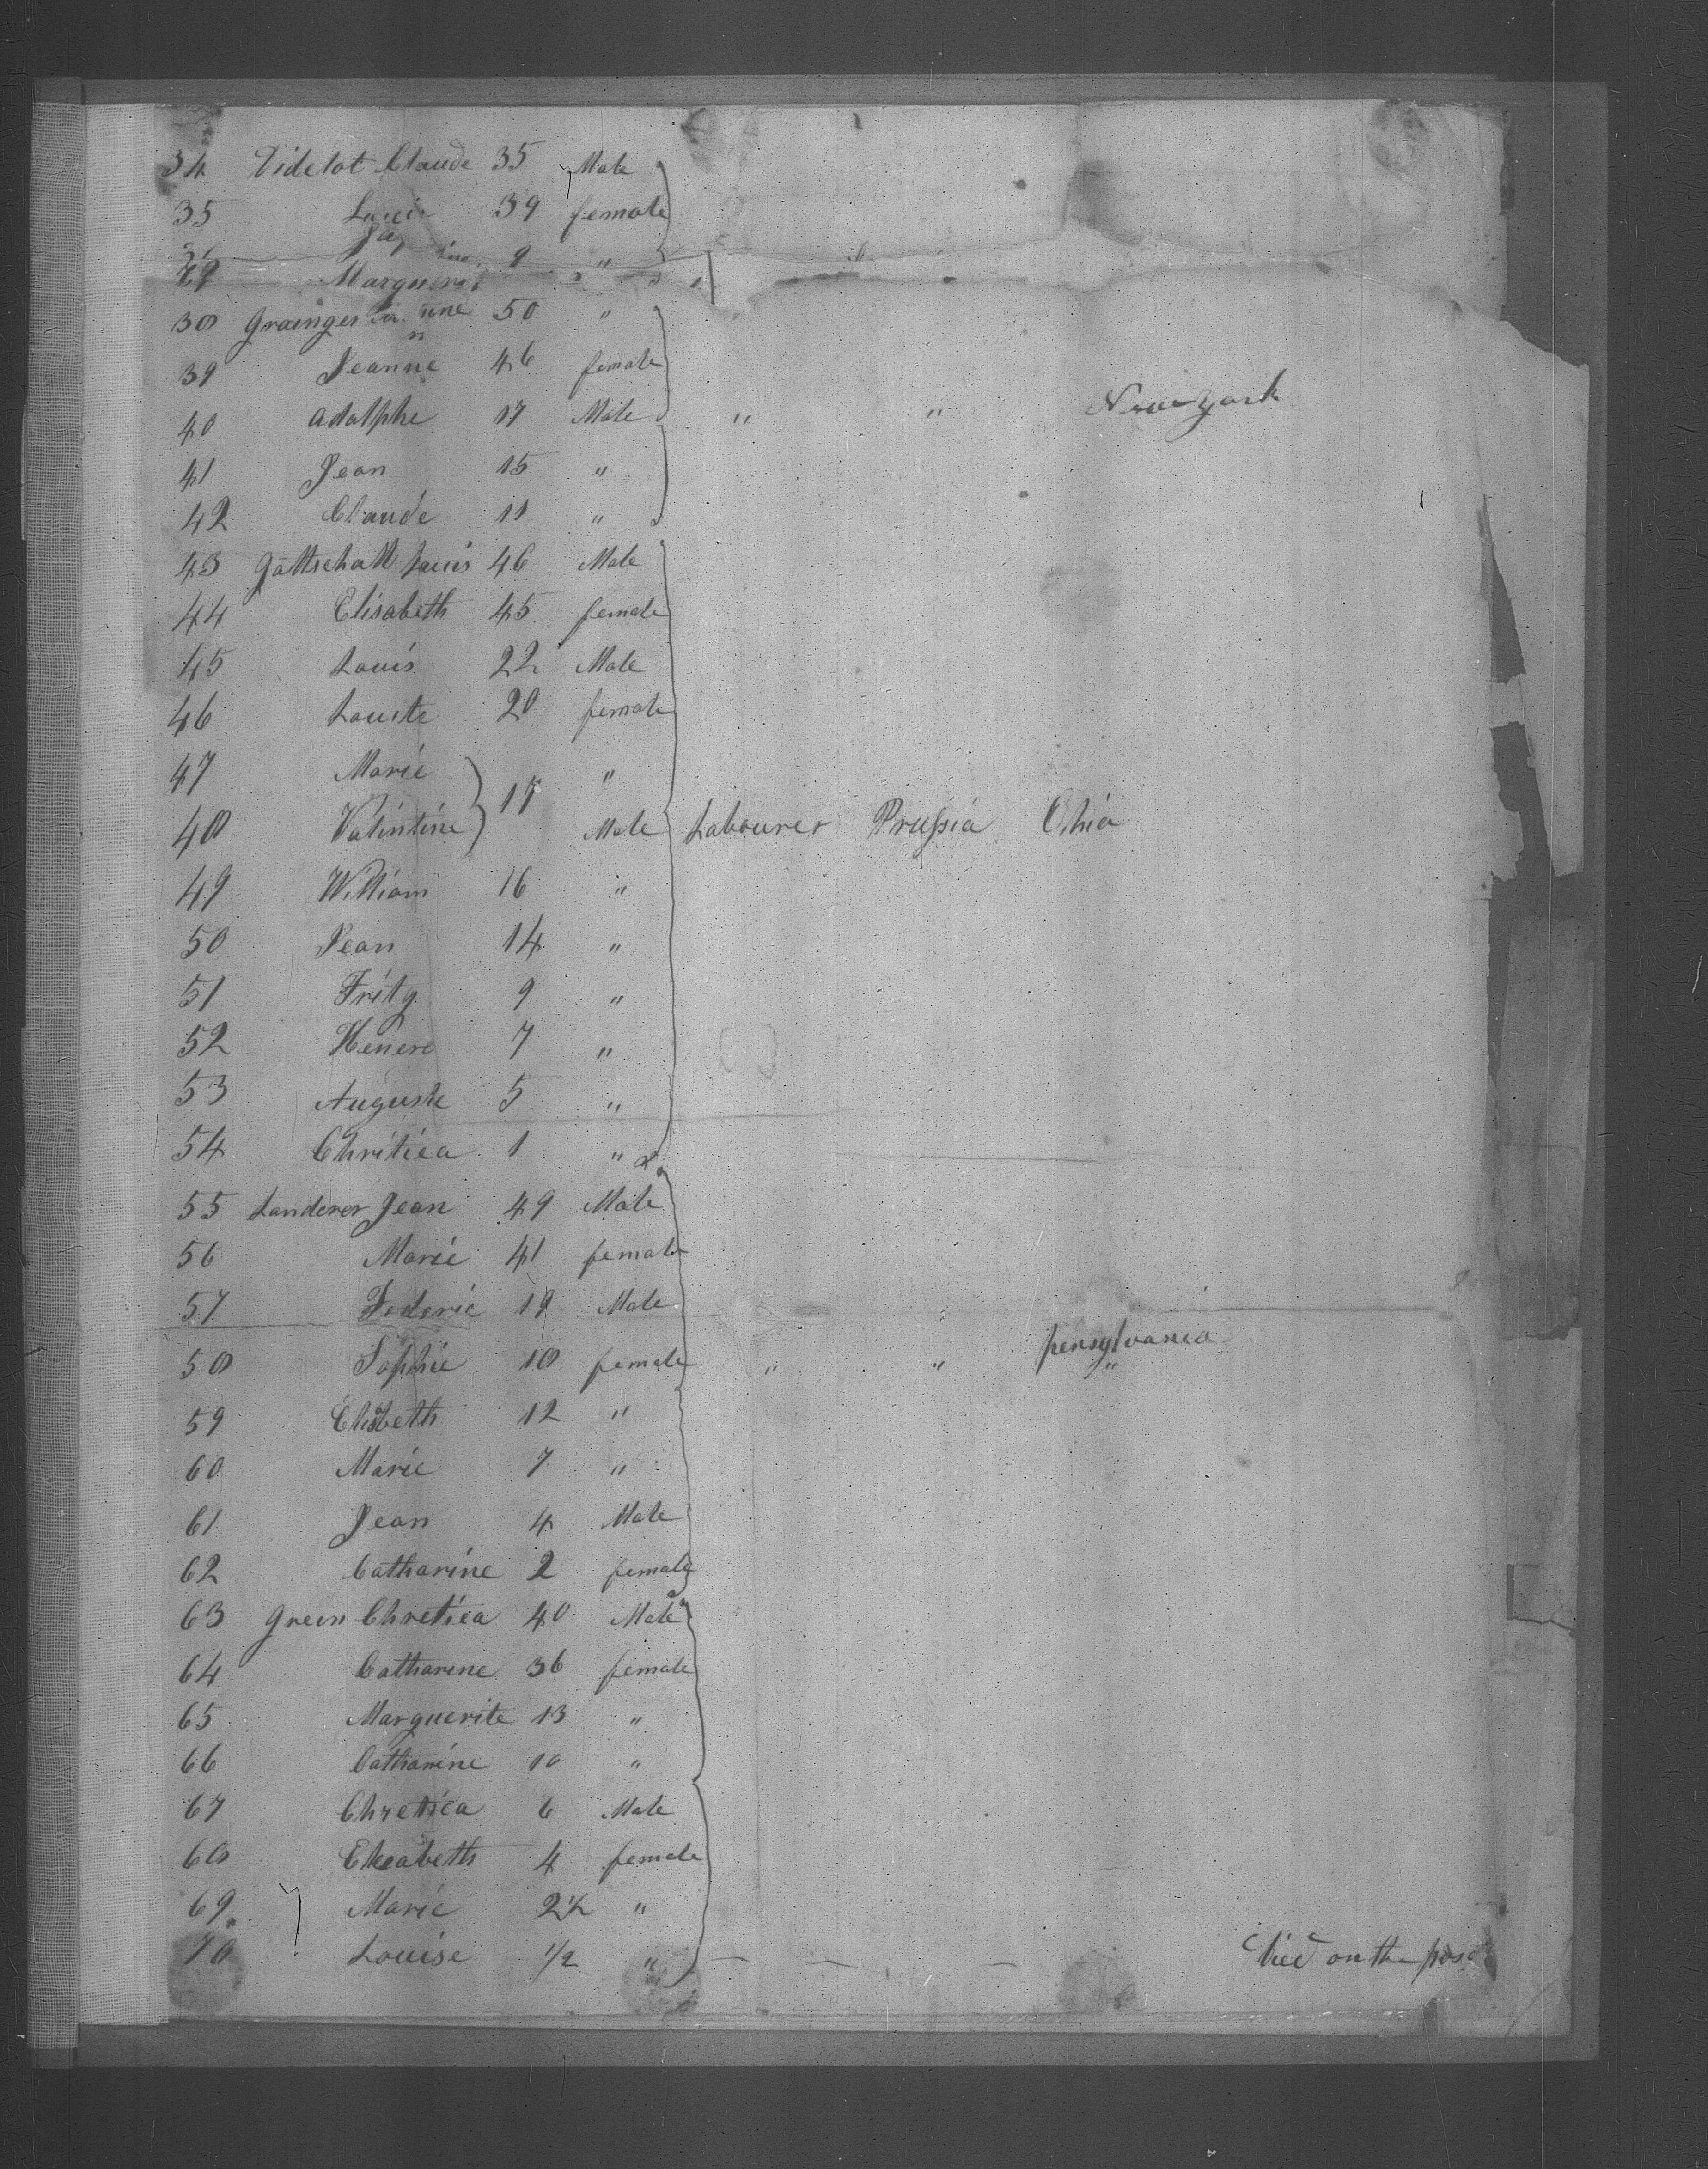 34 Didelot Claude 35 Male
35 Lucie 39 female
9 "
Marguerite
38 Grainger 50 "
39 Jeanne 46 female
40 Adolphe 17 Male " " New york
41 Jean 15 "
42 Claude 11 "
43 Gottschall Louis 46 Male
44 Elisabeth 45 female
45 Louis 22 Male
46 Louite 20 female
47 Marie "
17
48 Valintine Male Labourer Prussia Ohio
49 William 16 "
50 Jean 14 "
51 Fritz 9 "
52 Henere 7 "
53 Auguste 5 "
54 Chritiea 1 "
55 Landerer Jean 49 Male
56 Marie 41 female
57 Federic 19 Male
58 Sophie 18 female " " pensylvania "
59 Elisbeth 12 "
60 Marie 7 "
61 Jean 4 Male
62 Catharine 2 female
63 Green Chretiea 40 Male
64 Catharine 36 female
65 Marguerite 13 "
66 Catharine 10 "
67 Chretiea 6 Male
68 Eleabeth 4 female
69 Marie 2½ "
70 Louise ½ " died on the